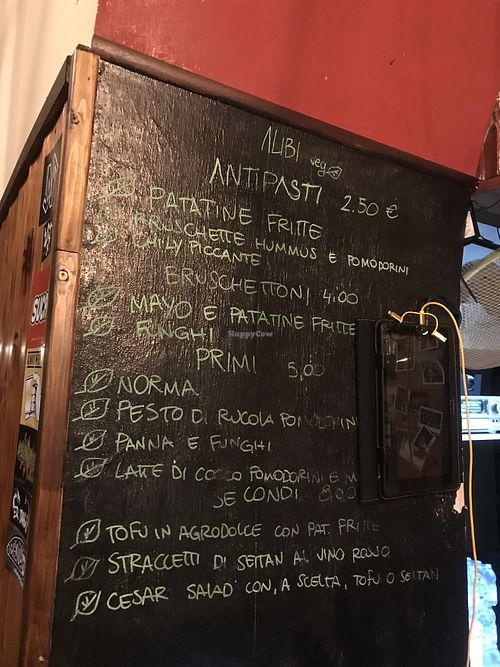 ALIBI veg
ANTIPASTI 2.50 €
PATATINE FRITTE
BRUSCHETTE HUMMUS E POMODORINI
CHILY PICCANTE
BRUSCHETTONI 4.00
MAYO E PATATINE FRITTE
FUNGHI
PRIMI 5,00
NORMA
PESTO DI RUCOLA POMODORIN
PANNA E FUNGHI
LATTE DI COCCO POMODORINI E M
SECONDI 8,00
TOFU IN AGRODOLCE CON PAT. FRITTE
STRACCETTI DI SEITAN AL VINO ROSSO
CESAR SALAD CON, A SCELTA, TOFU O SEITAN
HappyCow